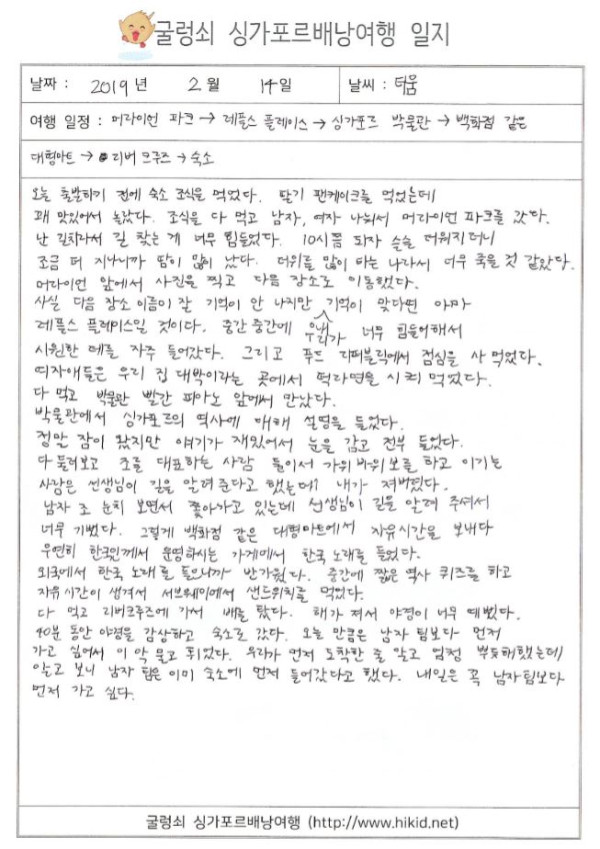 굴렁쇠 싱가포르배낭여행 일지
날짜 : 2019 년 2 월 14 일 날씨 : 더움
여행 일정 : 머라이언 파크 → 레플스 플레이스 → 싱가포르 박물관 → 백화점 같은
대형마트 → 리버 크루즈 → 숙소
오늘 출발하기 전에 숙소 조식을 먹었다. 딸기 팬케이크를 먹었는데
꽤 맛있어서 놀랐다. 조식을 다 먹고 남자, 여자 나눠서 머라이언 파크를 갔다.
난 길치라서 길 찾는 게 너무 힘들었다. 10시쯤 되자 슬슬 더워지더니
조금 더 지나니까 땀이 많이 났다. 더위를 많이 타는 나라서 너무 죽을 것 같았다.
머라이언 앞에서 사진을 찍고 다음 장소로 이동했다.
사실 다음 장소 이름이 잘 기억이 안 나지만 기억이 맞다면 아마
레플스 플레이스일 것이다. 중간 중간에 우리가 너무 힘들어해서
시원한 데를 자주 들어갔다. 그리고 푸드 리퍼블릭에서 점심을 사 먹었다.
여자애들은 우리 집 대박이라는 곳에서 떡라면을 시켜 먹었다.
다 먹고 박물관 빨간 피아노 앞에서 만났다.
박물관에서 싱가포르의 역사에 대해 설명을 들었다.
정말 잠이 왔지만 얘기가 재밌어서 눈을 감고 전부 들었다.
다 둘러보고 조를 대표하는 사람 둘이서 가위 바위 보를 하고 이기는
사람은 선생님이 길을 알려준다고 했는데 내가 져버렸다.
남자 조 눈치 보면서 쫓아가고 있는데 선생님이 길을 알려 주셔서
너무 기뻤다. 그렇게 백화점 같은 대형마트에서 자유시간을 보내다
우연히 한국인께서 운영하시는 가게에서 한국 노래를 들었다.
외국에서 한국 노래를 들으니까 반가웠다. 중간에 짧은 역사 퀴즈를 하고
자유시간이 생겨서 서브웨이에서 샌드위치를 먹었다.
다 먹고 리버크루즈에 가서 배를 탔다. 해가 져서 야경이 너무 예뻤다.
40분 동안 야경을 감상하고 숙소로 갔다. 오늘 만큼은 남자 팀보다 먼저
가고 싶어서 이 악 물고 뛰었다. 우리가 먼저 도착한 줄 알고 엄청 뿌듯해했는데
알고 보니 남자 팀은 이미 숙소에 먼저 들어갔다고 했다. 내일은 꼭 남자팀보다
먼저 가고 싶다.
굴렁쇠 싱가포르배낭여행 (http://www.hikid.net)